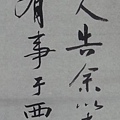 人告余以春
有事于西